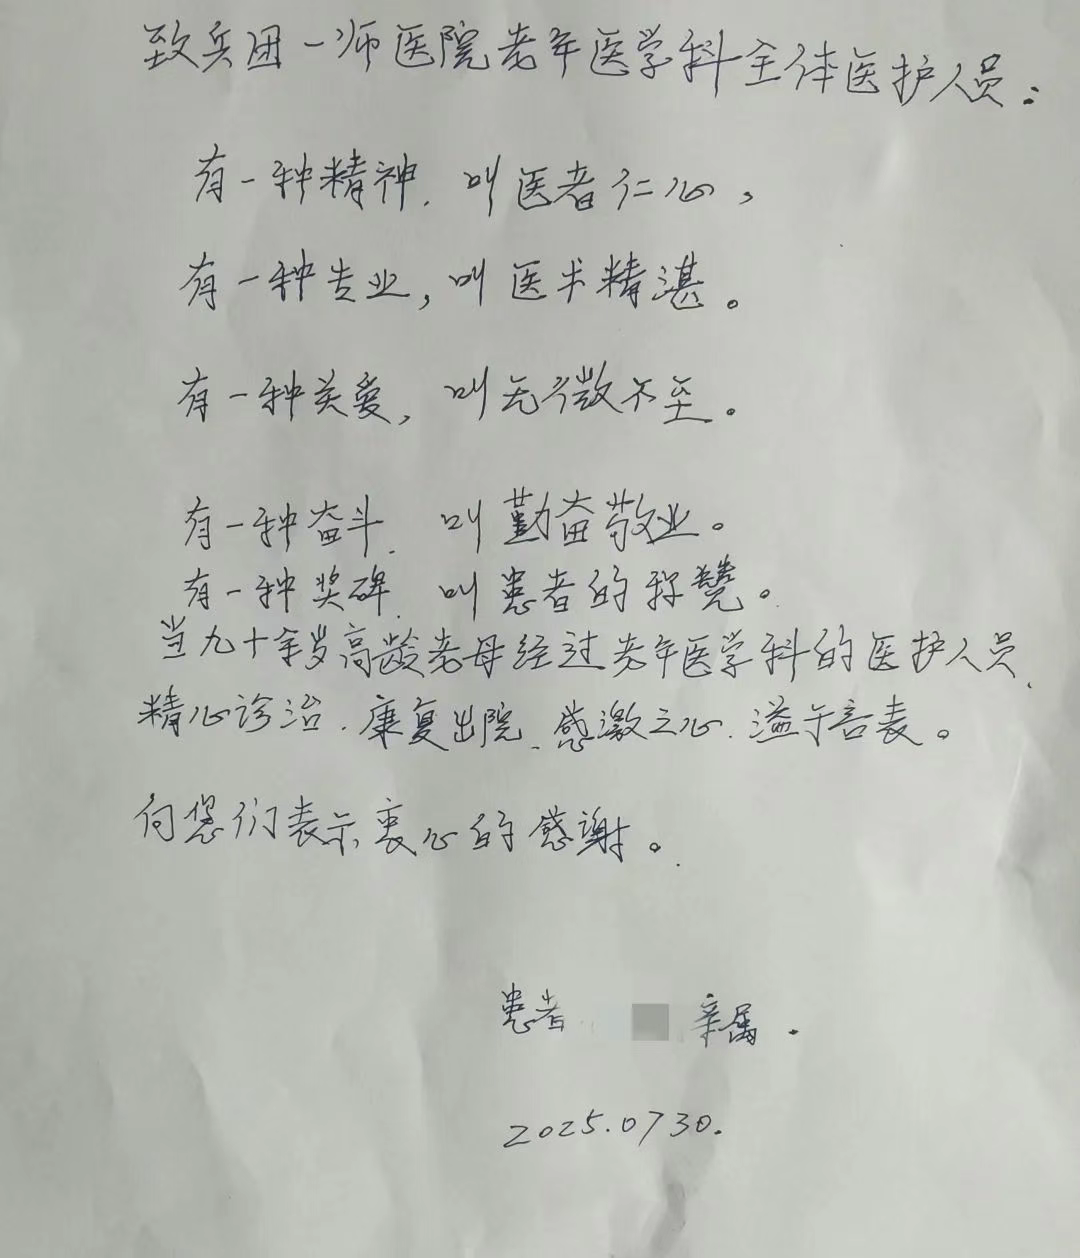 致兵团一师医院老年医学科全体医护人员：
有一种精神.叫医者仁心，
有一种专业，叫医术精湛。
有一种关爱，叫无微不至。
有一种奋斗.叫勤奋敬业。
有一种奖碑.叫患者的称赞。
当九十余岁高龄老母经过老年医学科的医护人员.
精心诊治.康复出院.感激之心.溢于言表。
向您们表示衷心的感谢。
患者 亲属.
2025.0730.